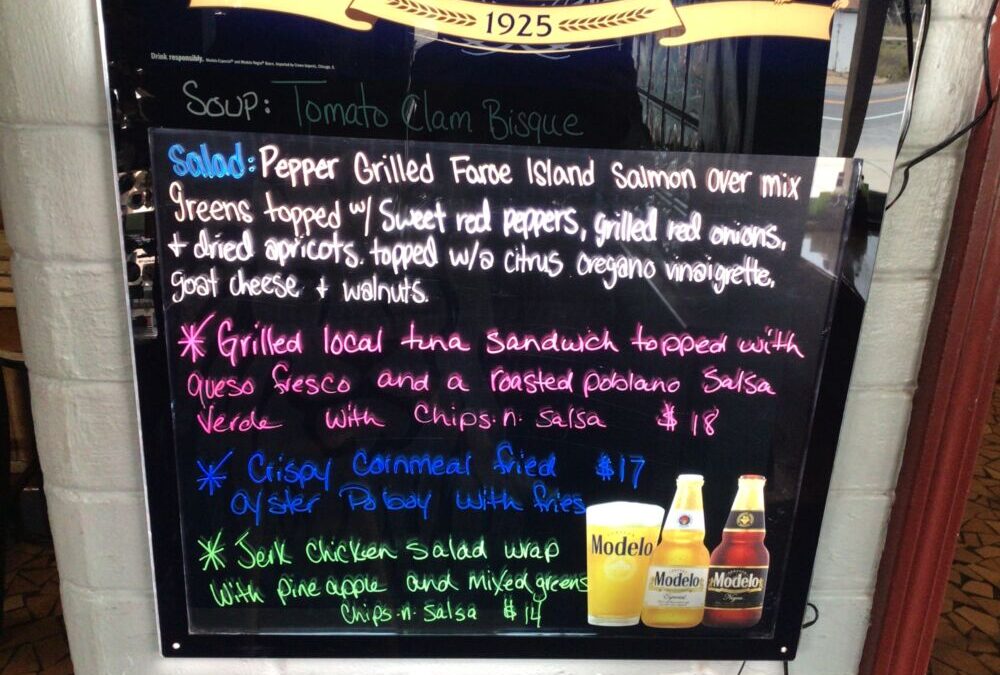 1925
Drink responsibly.
Soup: Tomato Clam Bisque
Salad: Pepper Grilled Faroe Island Salmon over mix
greens topped w/ Sweet red peppers, grilled red onions,
+ dried apricots. topped w/a citrus oregano vinaigrette,
goat cheese + walnuts.
* Grilled local tuna sandwich topped with
queso fresco and a roasted poblano Salsa
Verde with Chips.n.Salsa $18
* Crispy Cornmeal fried $17
oyster Po boy with fries
* Jerk chicken salad wrap
With pineapple and mixed greens
Chips.n.Salsa $14
Modelo
Modelo
Especial
Modelo
Negra